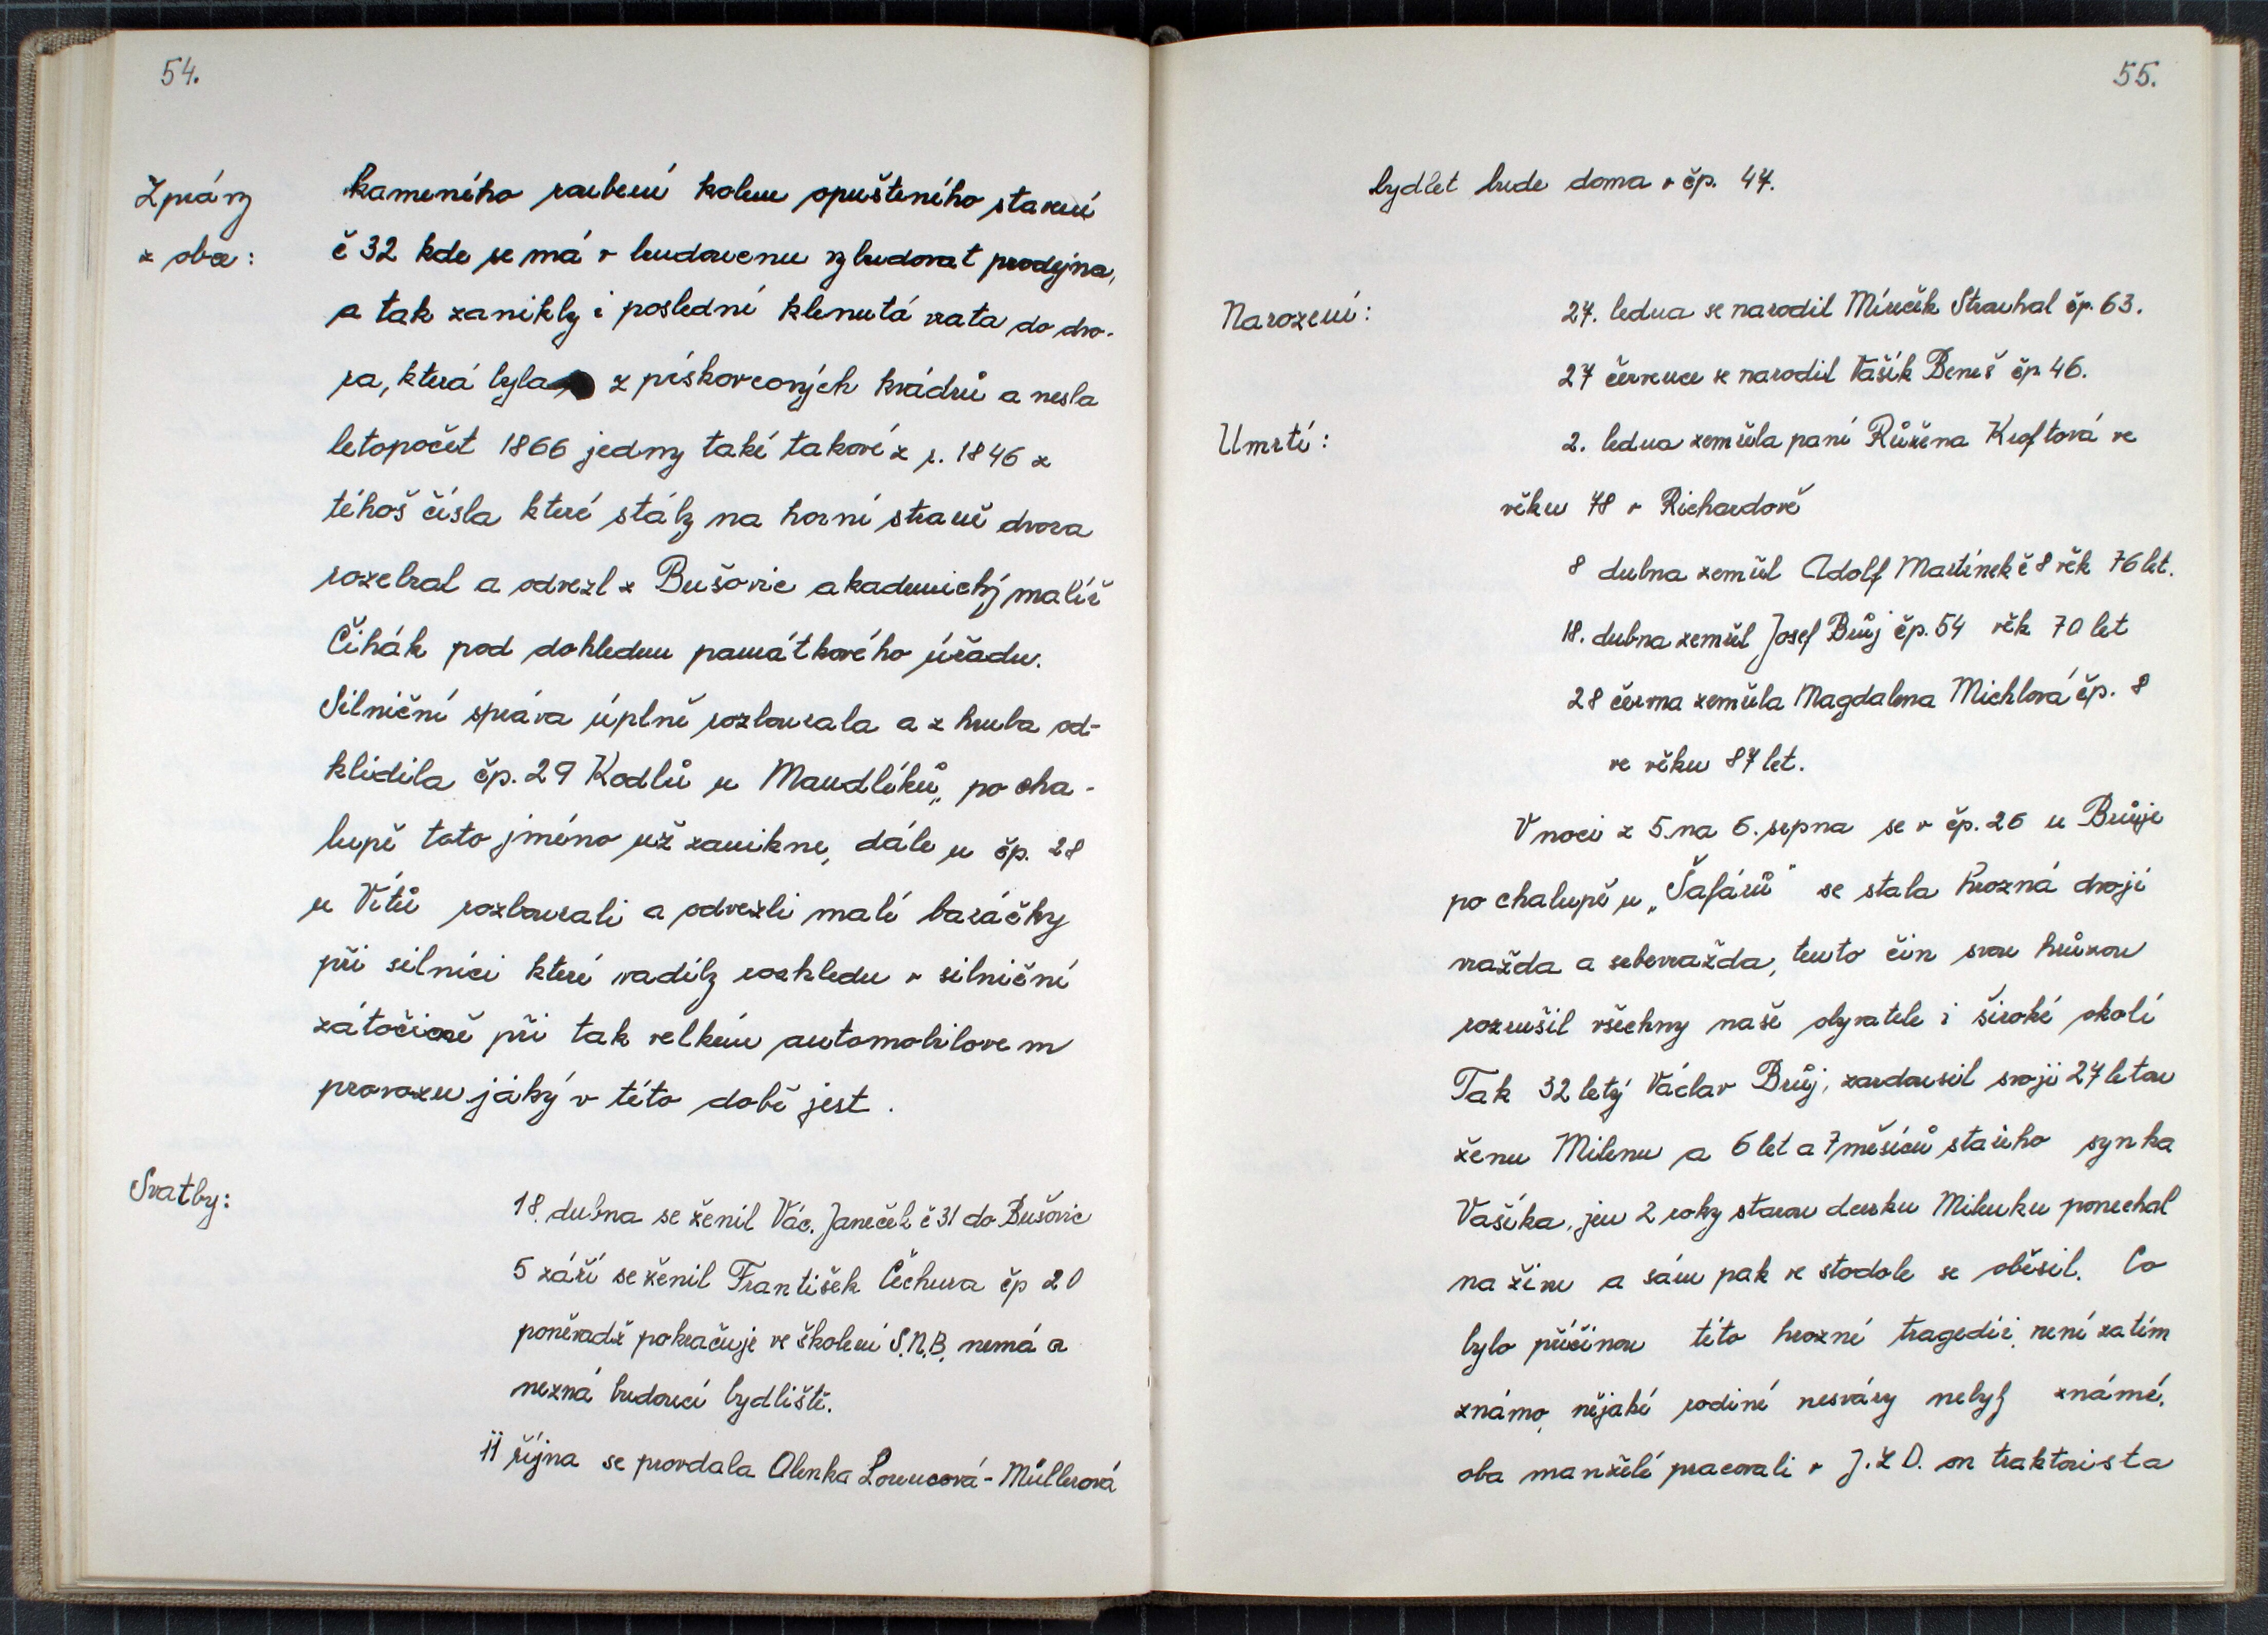 54.
Zprávy
z obce:
kameného roubení kolem opušteného stavení
č 32 kde se má v budoucnu vybudovat prodejna,
a tak zanikly i poslední klenutá vrata do dvo-
ra, která byla z pískovcových kvádrů a nesla
letopočet 1866 jedny také takové z r. 1846 z
téhoš čísla které stály na horní straně dvora
rozebral a odvezl z Bušovic akademický malíř
Čihák pod dohledem památkového úřadu.
Silniční správa úplně rozbourala a z hruba od-
klidila čp. 29 Kodlů u Maudlíků„ po cha-
lupě toto jméno už zanikne, dále u čp. 28
u Vítů rozbourali a odvezli malé baráčky
při silnici které vadily rozhledu v silniční
zátočině při tak velkém automobilovem
provozu jáký v této době jest.
Svatby:
18. dubna se ženil Vác. Janeček č 31 do Bušovic
5 září se ženil František Čechura čp 20
poněvadž pokračuje ve školení S.N.B. nemá a
nezná budoucí bydliště.
11 října se provdala Alenka Lorencová - Müllerová
55.
bydlet bude doma v čp. 47.
Narození:
27. ledna se narodil Míreček Strauhal čp. 63.
27 července se narodil Vašík Beneš čp. 46.
Umrtí:
2. ledna zemřela paní Růžena Kroftová ve
věku 78 v Richardově
8 dubna zemřel Adolf Martínek č 8 věk 76 let.
18. dubna zemřel Josef Brůj čp. 54 věk 70 let
28 června zemřela Magdalena Michlová čp. 8
ve věku 87 let.
V noci z 5. na 6. srpna se v čp. 26 u Brůje
po chalupě u „Šafářů“ se stala hrozná dvojí
vražda a sebevražda, tento čin svou hrůzou
rozrušil všechny naše obyvatele i široké okolí
Tak 32 letý Václav Brůj, zardousil svoji 27 letou
ženu Milenu a 6 let a 7 měsíců starého synka
Vašíka, jen 2 roky starou dcerku Milenku ponechal
na živu a sám pak ve stodole se oběsil. Co
bylo příčinou této hrozné tragedii, není zatím
známo, nějaké rodiné nesváry nebyly známé.
oba manželé pracovali v J.Z.D. on traktorista